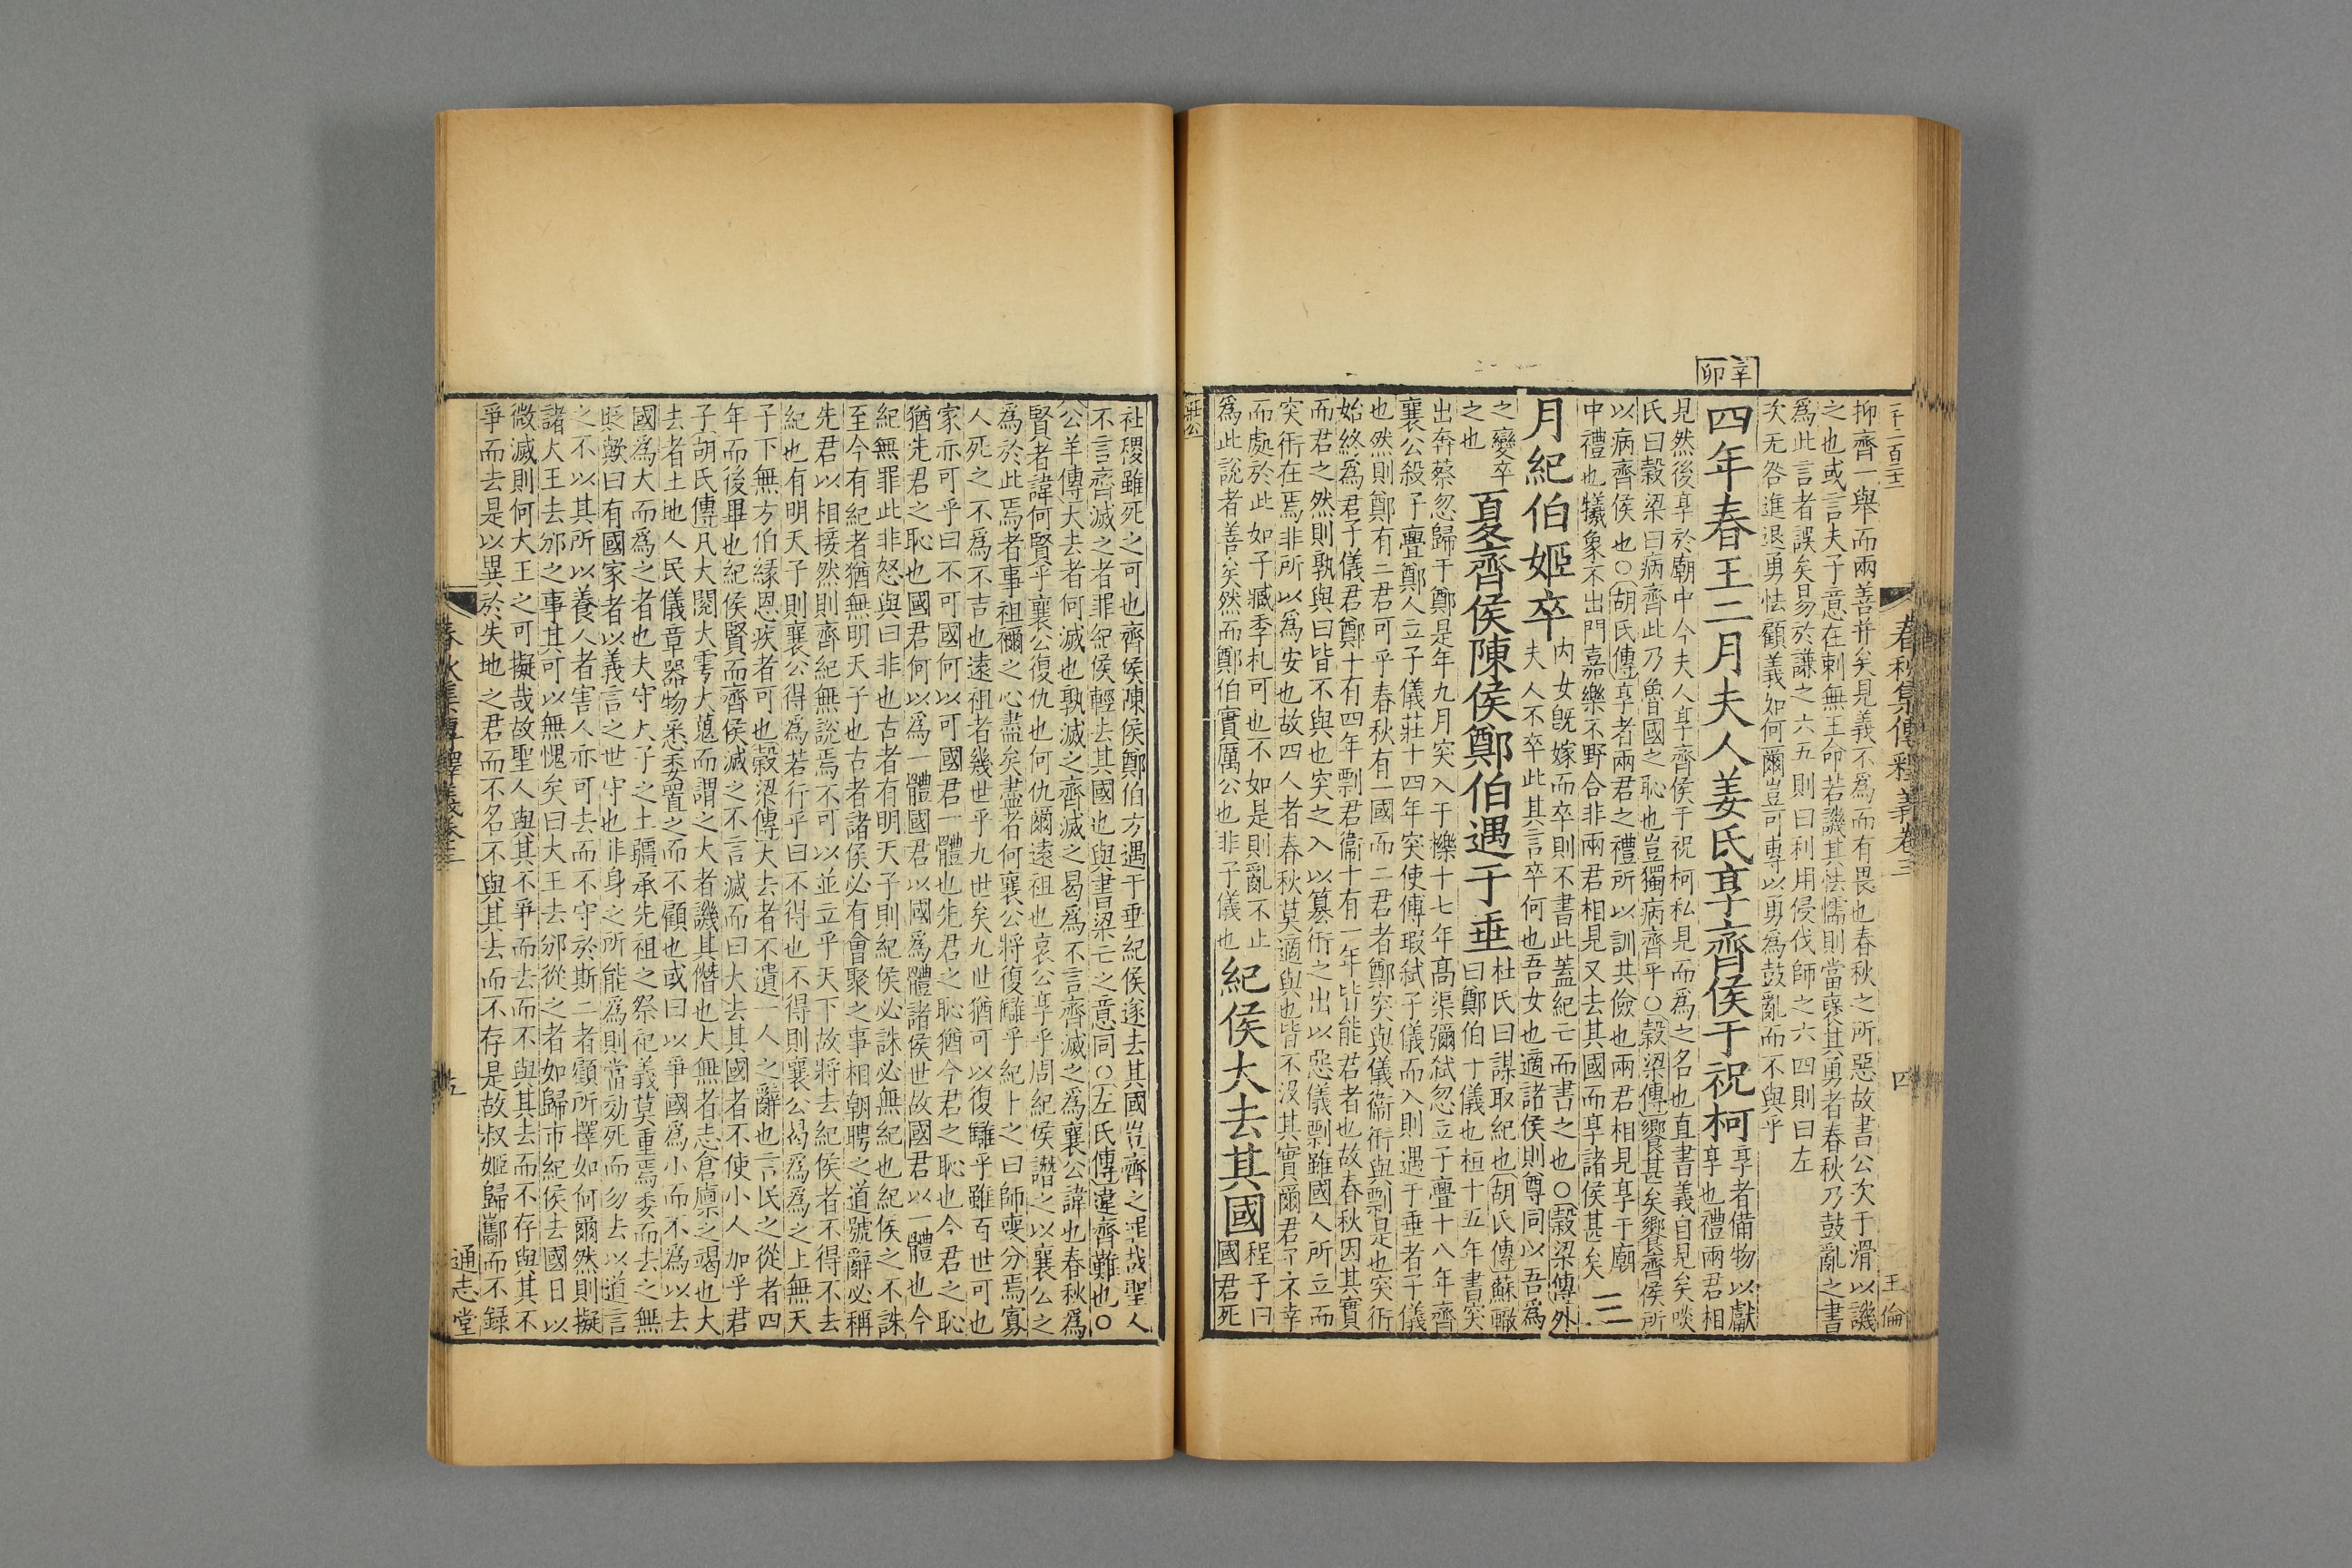 辛卯
抑齊一舉而兩善并矣見義不為而有畏也春秋之所惡故書公次于滑以譏
之也或言夫子意在刺無王命若譏其怯懦則當襃其勇者春秋乃鼓亂之書
為此言者誤矣易於謙之六五則曰利用侵伐師之六四則曰左
次无咎進退勇怯顧義如何爾豈可專以勇為鼓亂而不與乎
四年春王二月夫人姜氏享齊侯于祝柯
享者備物以獻
享也禮兩君相
見然後享於廟中今夫人享齊侯于祝柯私見而為之名也直書義自見矣啖
氏曰穀梁曰病齊此乃魯國之恥也豈獨病齊乎○穀梁傳饗甚矣饗齊侯所
以病齊侯也○胡氏傳享者兩君之禮所以訓共儉也兩君相見享于廟
中禮也犧象不出門嘉樂不野合非兩君相見又去其國而享諸侯甚矣
三
月紀伯姬卒
内女既嫁而卒則不書此蓋紀亡而書之也○穀梁傳外
夫人不卒此其言卒何也吾女也適諸侯則尊同以吾為
之變卒
之也
夏齊侯陳侯鄭伯遇于垂
杜氏曰謀取紀也胡氏傳蘇轍
曰鄭伯十儀也桓十五年書突
出奔蔡忽歸于鄭是年九月突入于櫟十七年高渠彌弒忽立子亹十八年齊
襄公殺子亹鄭人立子儀莊十四年突使傅瑕弒子儀而入則遇于垂者子儀
也然則鄭有二君可乎春秋有一國而二君者鄭突與儀衞衎與剽是也突衎
始終為君子儀君鄭十有四年剽君衞十有一年皆能君者也故春秋因其實
而君之然則孰與曰皆不與也突之入以篡衎之出以惡儀剽雖國人所立而
突衎在焉非所以為安也故四人者春秋莫適與也皆不沒其實爾君子不幸
而處於此如子臧季札可也不如是則亂不止
為此說者善矣然而鄭伯實厲公也非子儀也
紀侯大去其國
程子曰
國君死
春秋集傳釋義卷三
四
王倫
莊公
社稷雖死之可也齊侯陳侯鄭伯方遇于垂紀侯遂去其國豈齊之罪哉聖人
不言齊滅之者罪紀侯輕去其國也與書梁亡之意同○左氏傳違齊難也○
公羊傳大去者何滅也孰滅之齊滅之曷為不言齊滅之為襄公諱也春秋為
賢者諱何賢乎襄公復仇也何仇爾遠祖也哀公享乎周紀侯譖之以襄公之
為於此焉者事祖禰之心盡矣盡者何襄公將復讎乎紀卜之曰師喪分焉寡
人死之不為不吉也遠祖者幾世乎九世矣九世猶可以復讎乎雖百世可也
家亦可乎曰不可國何以可國君一體也先君之恥猶今君之恥也今君之恥
猶先君之恥也國君何以為一體國君以國為體諸侯世故國君以一體也今
紀無罪此非怒與曰非也古者有明天子則紀侯必誅必無紀也紀侯之不誅
至今有紀者猶無明天子也古者諸侯必有會聚之事相朝聘之道號辭必稱
先君以相接然則齊紀無說焉不可以並立乎天下故將去紀侯者不得不去
紀也有明天子則襄公得為若行乎曰不得也不得則襄公曷為為之上無天
子下無方伯緣恩疾者可也穀梁傳大去者不遺一人之辭也言民之從者四
年而後畢也紀侯賢而齊侯滅之不言滅而曰大去其國者不使小人加乎君
子胡氏傳凡大閱大雩大蒐而謂之大者譏其僭也大無者志倉廩之竭也大
去者土地人民儀章器物悉委置之而不顧也或曰以爭國為小而不為以去
國為大而為之者也夫守天子之土疆承先祖之祭祀義莫重焉委而去之無
貶歟曰有國家者以義言之世守也非身之所能為則當効死而勿去以道言
之不以其所以養人者害人亦可去而不守於斯二者顧所擇如何爾然則擬
諸大王去邠之事其可以無愧矣曰大王去邠從之者如歸市紀侯去國日以
微滅則何大王之可擬哉故聖人與其不爭而去而不與其去而不存與其不
爭而去是以異於失地之君而不名不與其去而不存是故叔姬歸酅而不錄
春秋集傳釋義卷三
五
通志堂